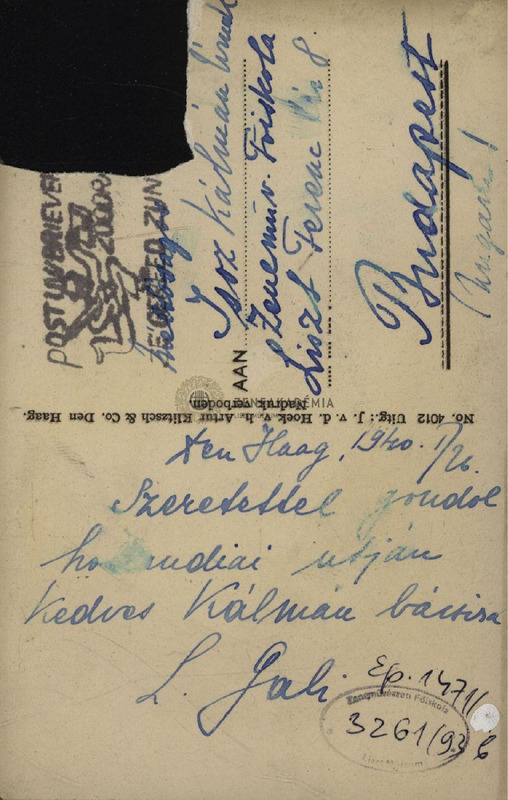 Isoz Kálmán Úrnak
AAN
Zeneműv. Főiskola
Liszt Ferenc tér 8.
Budapest
No. 4012 Uitg.: J. v. d. Hoek v. h. Artur Klitzsch & Co. Den Haag.
Nadruk verboden
Den Haag, 1940. I/26.
Szeretettel gondol
hollandiai útján
Kedves Kálmán bácsira
L. Gali
Ep. 1471/
Zeneművészeti Főiskola
3261/93
Liszt Múzeum